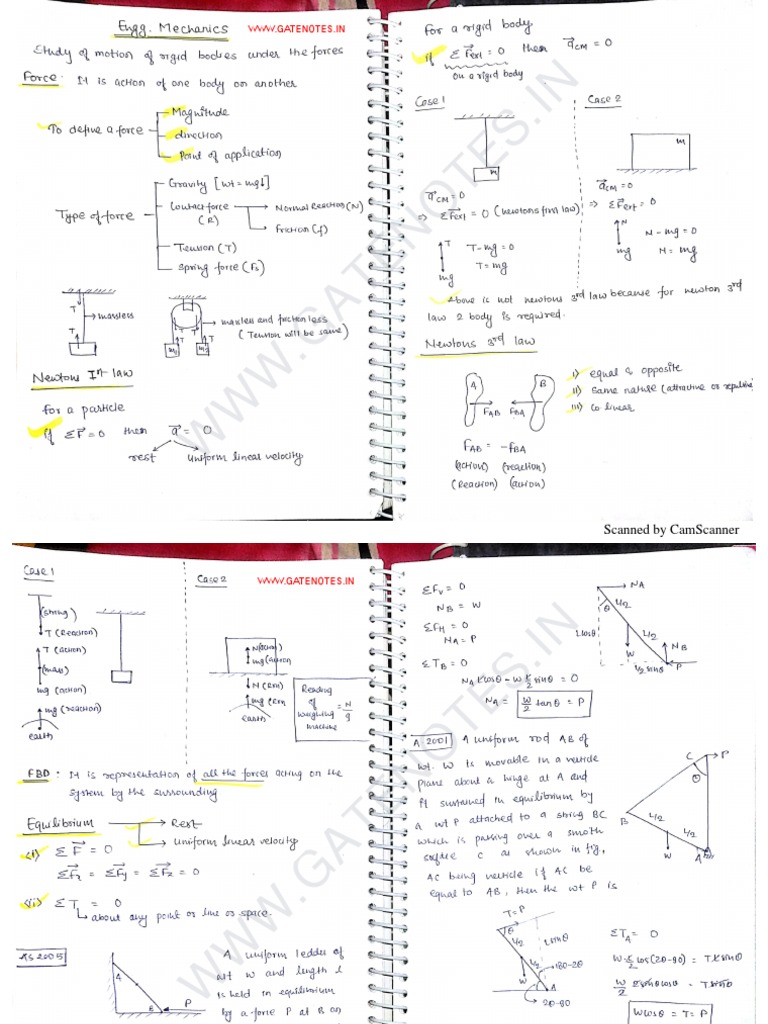 Engg. Mechanics
WWW.GATENOTES.IN
Study of motion of rigid bodies under the forces
Force: It is action of one body on another
To define a force
Magnitude
direction
Point of application
Type of force
Gravity [wt = mg↓]
Contact force (R)
Normal Reaction (N)
Friction (f)
Tension (T)
Spring force (Fs)
T
T
massless
T T
m1 m2
massless and friction less
(Tension will be same)
Newtons Ist law
for a particle
if ΣF = 0 then a = 0
rest uniform linear velocity
For a rigid body
if ΣFext = 0 then aCM = 0
on a rigid body
Case 1
m
aCM = 0
⇒ ΣFext = 0 (newtons first law)
T
mg
T - mg = 0
T = mg
Case 2
m
aCM = 0
⇒ ΣFext = 0
N
mg
N - mg = 0
N = mg
Above is not newtons 3rd law because for newton 3rd
law 2 body is required.
Newtons 3rd law
A B
FAB FBA
i) equal & opposite
ii) same nature (attractive or repulsive)
iii) co linear
FAB = -FBA
(action) (reaction)
(Reaction) (action)
WWW.GATENOTES.IN
Scanned by CamScanner
Case 1
(string)
T (Reaction)
T (action)
(mass)
mg (action)
mg (reaction)
earth
Case 2
WWW.GATENOTES.IN
N (action)
mg (action
N (Rxn)
mg (Rxn
earth
Reading of weighing machine = N/g
FBD: It is representation of all the forces acting on the
system by the surrounding
Equilibrium
Rest
Uniform linear velocity
(i) ΣF = 0
ΣFx = ΣFy = ΣFz = 0
(ii) ΣT = 0
about any point or line or space.
A
B
P
A uniform ladder of
wt W and length l
is held in equilibrium
by a force P at B on
ΣFV = 0
NB = W
ΣFH = 0
NA = P
ΣTB = 0
NA l cosθ - W l/2 sinθ = 0
NA = W/2 tanθ = P
NA
θ
L/2
L/2
lcosθ
W
NB
P
l/2 sinθ
A 2001
A uniform rod AB of
wt. W is movable in a verticle
plane about a hinge at A and
it sustained in equilibrium by
a wt P attached to a string BC
which is passing over a smoth
surface C as shown in fig,
AC being verticle if AC be
equal to AB, then the wt P is
C
P
θ
B
L/2
L/2
W
A
T=P
θ
L/2
L/2
W
A
180-2θ
2θ-90
ΣTA = 0
Wcosθ = T = P
WWW.GATENOTES.IN